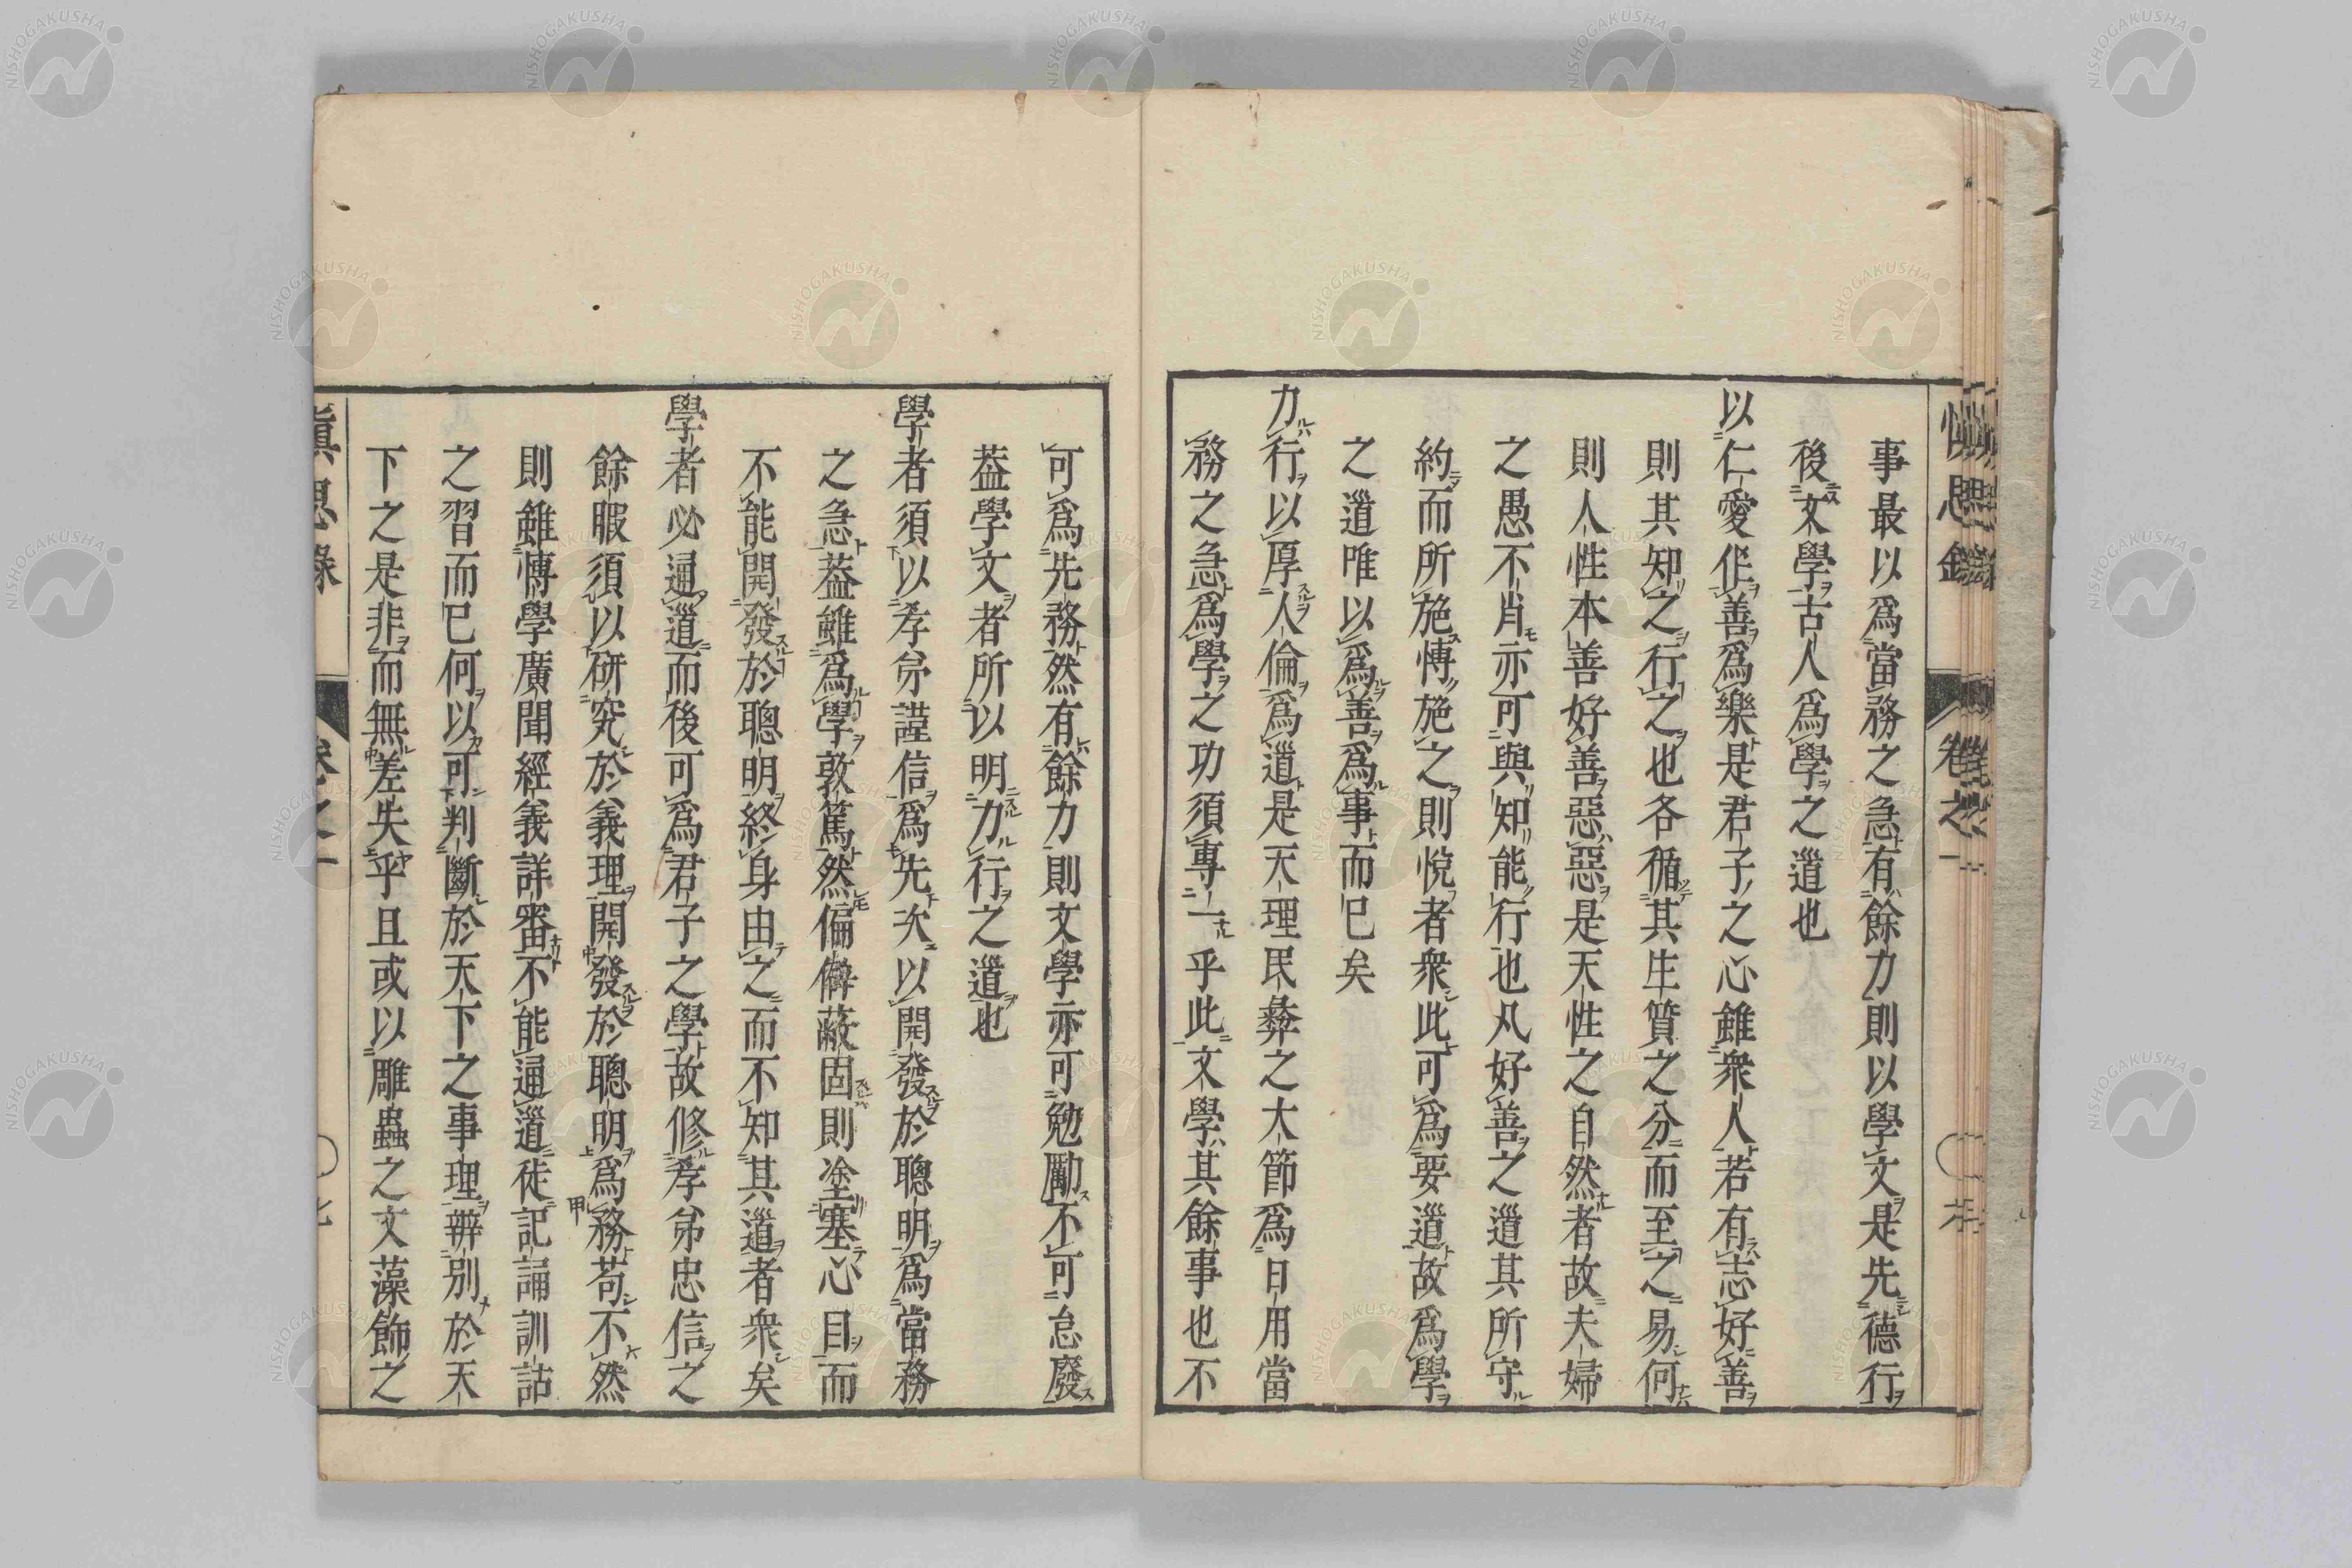 慎思録 卷之一
事最以爲當務之急有餘力則以學文是先德行
後文學古人爲學之道也
以仁愛作善爲樂是君子之心雖衆人若有志好善
則其知之行之也各循其生質之分而至之易何
則人性本善好善惡惡是天性之自然者故夫婦
之愚不肖亦可與知能行也凡好善之道其所守
約而所施博施之則悅者衆此可爲要道故爲學
之道唯以爲善爲事而已矣
力行以厚人倫爲道是天理民彝之大節爲日用當
務之急爲學之功須專一乎此文學其餘事也不
可爲先務然有餘力則文學亦可勉勵不可怠廢
葢學文者所以明力行之道也
學者須以孝弟謹信爲先次以開發於聰明爲當務
之急葢雖爲學敦篤然偏僻蔽固則塗塞心目而
不能開發於聰明終身由之而不知其道者衆矣
學者必通道而後可爲君子之學故修孝弟忠信之
餘暇須以研究於義理開發於聰明爲務苟不然
則雖博學廣聞經義詳審不能通道徒記誦訓詁
之習而已何以可判斷於天下之事理辨別於天
下之是非而無差失乎且或以雕蟲之文藻飾之
慎思錄 卷之一 七
NISHOGAKUSHA